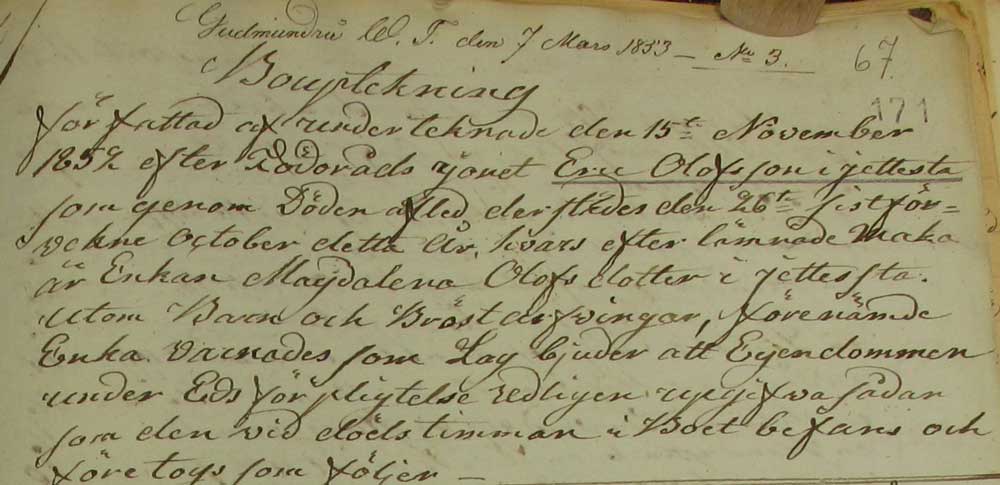 Gudmundrå W. T. den 7 Mars 1853 — No 3.
67
171
Bouptekning
författad af underteknade den 15te November
1852 efter Eric Olofsson i jettesta
som genom Döden afled, derstädes den 26te sistför=
vekne October detta År, hvars efter lämnade Maka
är Enkan Magdalena Olofsdotter i jettessta.
utom Barn och Bröstarfvingar, förenämde
Enka varnades som Lag bjuder att Egendommen
under Eds förpligtelse redligen uppgifwa sådan
som den vid dödstimman i Boet befans och
företogs som följer —